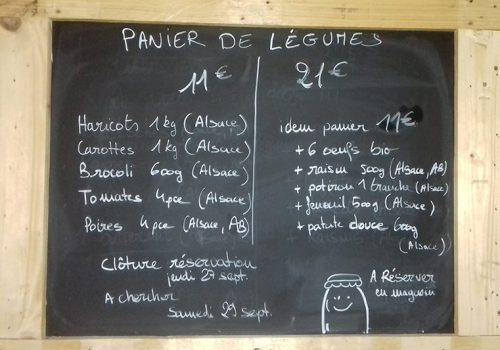 PANIER DE LÉGUMES
11€
Haricots 1 kg (Alsace)
Carottes 1 kg (Alsace)
Brocoli 600g (Alsace)
Tomates 4 pce (Alsace)
Poires 4 pce (Alsace, AB)
Clôture réservation
jeudi 27 sept.
A chercher
samedi 29 sept.
21€
idem panier 11€
+ 6 oeufs bio
+ raisin 500g (Alsace, AB)
+ potiron 1 tranche (Alsace)
+ fenouil 500g (Alsace)
+ patate douce 600g
(Alsace)
A Réserver
en magasin